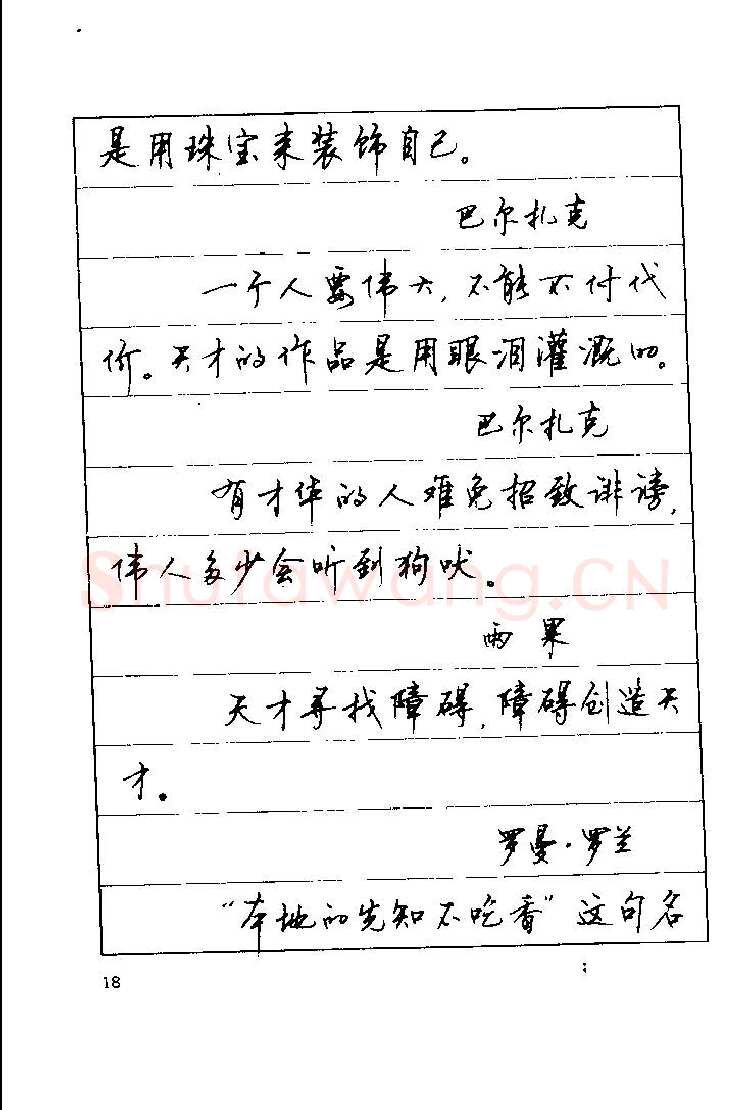 是用珠宝来装饰自己。
巴尔扎克
一个人要伟大,不能不付代
价。天才的作品是用眼泪灌溉的。
巴尔扎克
有才华的人难免招致诽谤,
伟人多少会听到狗吠。
Shufawang.CN
雨果
天才寻找障碍,障碍创造天
才。
罗曼·罗兰
“本地的先知不吃香”这句名
18